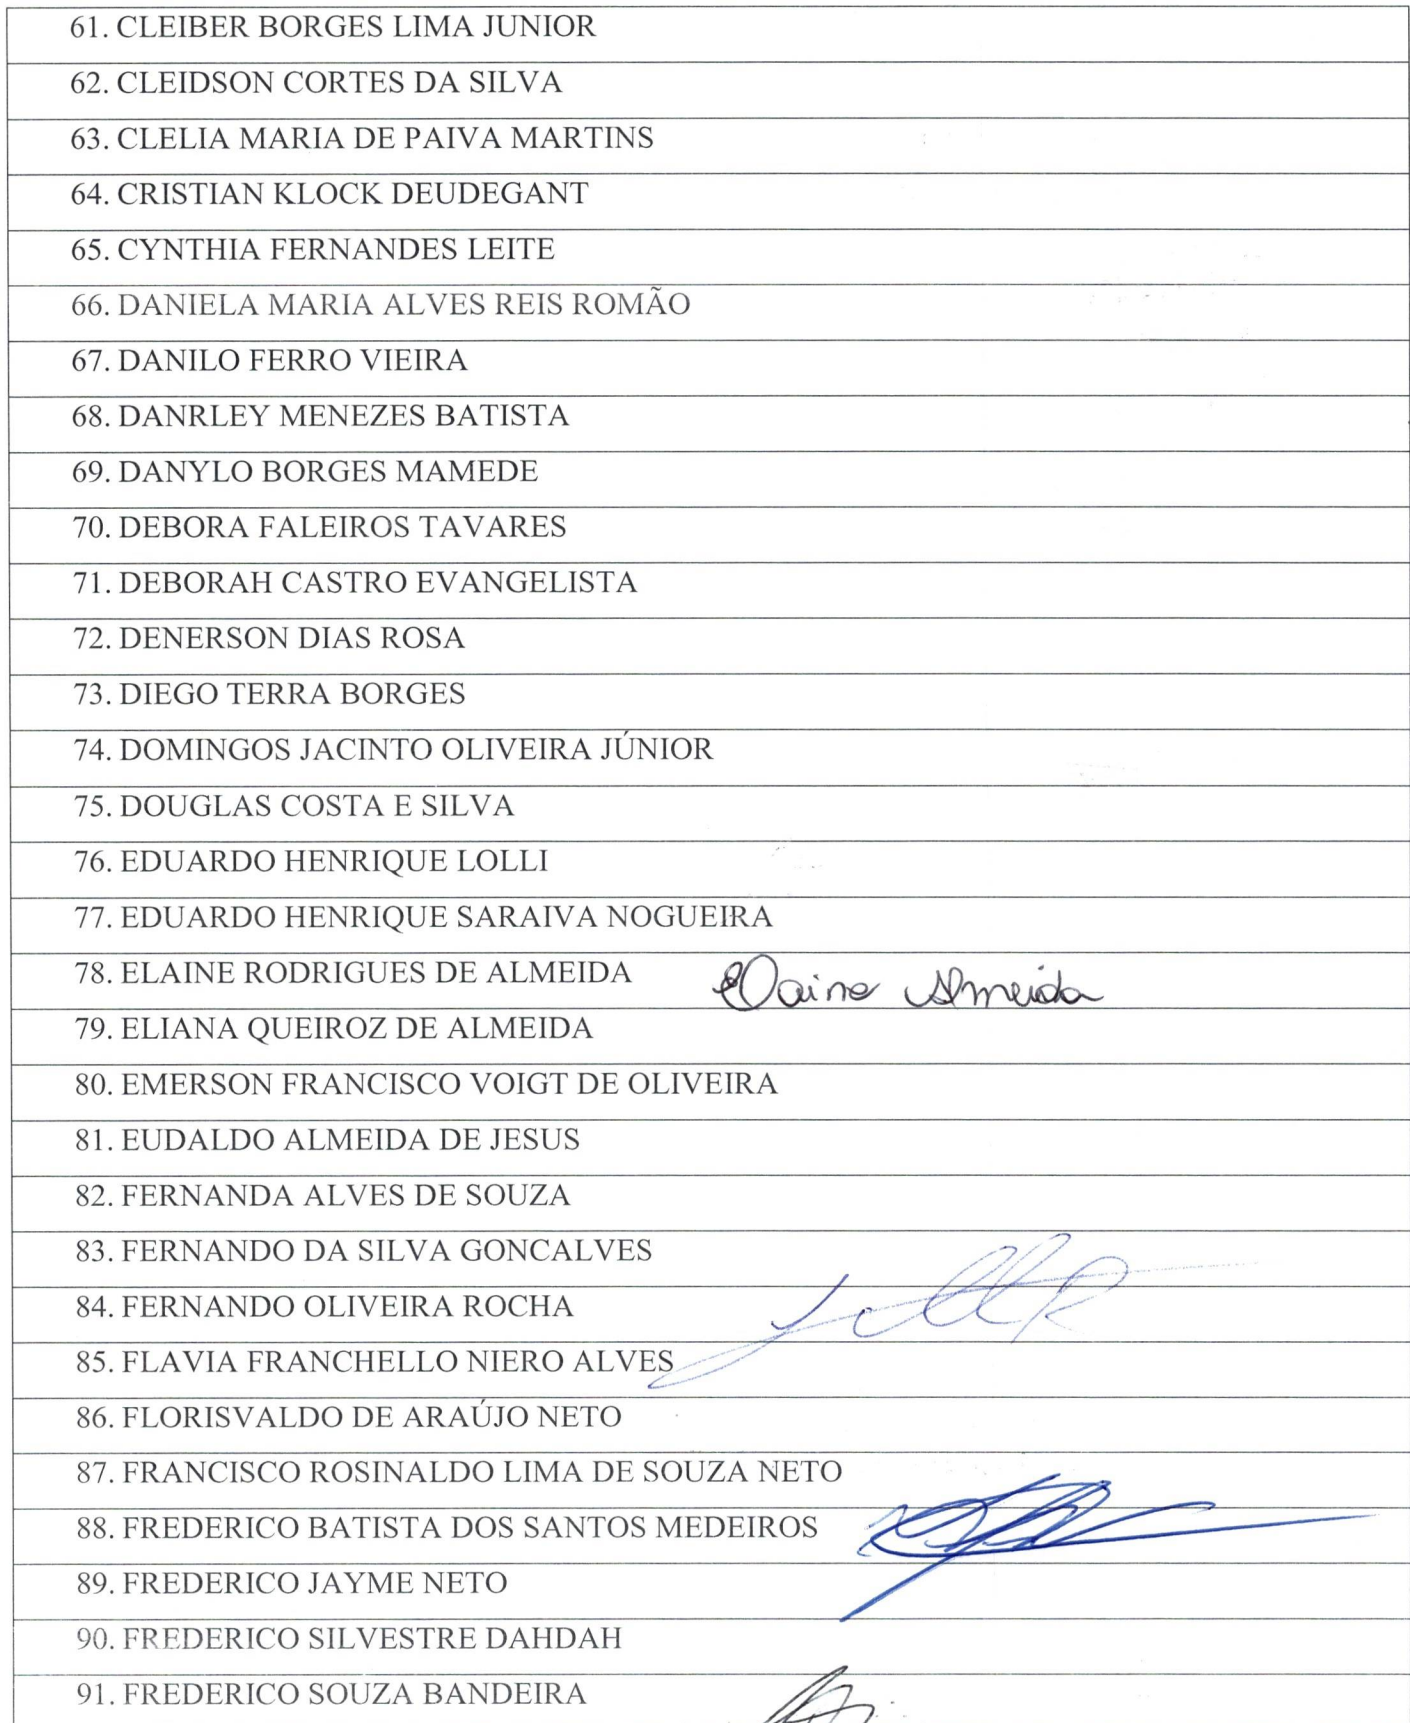 61. CLEIBER BORGES LIMA JUNIOR
62. CLEIDSON CORTES DA SILVA
63. CLELIA MARIA DE PAIVA MARTINS
64. CRISTIAN KLOCK DEUDEGANT
65. CYNTHIA FERNANDES LEITE
66. DANIELA MARIA ALVES REIS ROMÃO
67. DANILO FERRO VIEIRA
68. DANRLEY MENEZES BATISTA
69. DANYLO BORGES MAMEDE
70. DEBORA FALEIROS TAVARES
71. DEBORAH CASTRO EVANGELISTA
72. DENERSON DIAS ROSA
73. DIEGO TERRA BORGES
74. DOMINGOS JACINTO OLIVEIRA JÚNIOR
75. DOUGLAS COSTA E SILVA
76. EDUARDO HENRIQUE LOLLI
77. EDUARDO HENRIQUE SARAIVA NOGUEIRA
78. ELAINE RODRIGUES DE ALMEIDA Elaine Almeida
79. ELIANA QUEIROZ DE ALMEIDA
80. EMERSON FRANCISCO VOIGT DE OLIVEIRA
81. EUDALDO ALMEIDA DE JESUS
82. FERNANDA ALVES DE SOUZA
83. FERNANDO DA SILVA GONCALVES
84. FERNANDO OLIVEIRA ROCHA
85. FLAVIA FRANCHELLO NIERO ALVES
86. FLORISVALDO DE ARAÚJO NETO
87. FRANCISCO ROSINALDO LIMA DE SOUZA NETO
88. FREDERICO BATISTA DOS SANTOS MEDEIROS
89. FREDERICO JAYME NETO
90. FREDERICO SILVESTRE DAHDAH
91. FREDERICO SOUZA BANDEIRA